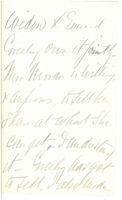 & Edward
Greeley own it jointly.
Mrs. Norman is willing
& anxious, to sell her
share at what she
can get. I understand
it - Greeley has got
to sell, I also under